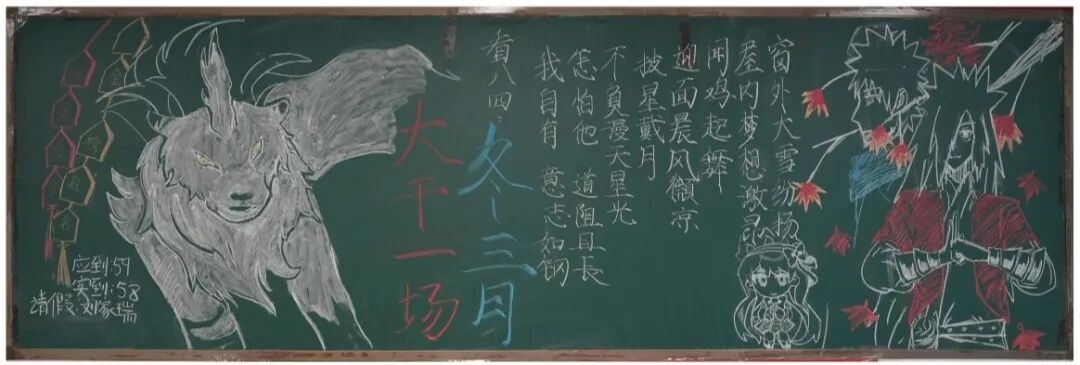 窗外大雪纷扬
屋内梦想激昂
闻鸡起舞
迎面晨风微凉
披星戴月
不負漫天星光
怎怕他 道阻且長
我自有 意志如钢
看八四:
冬三月
大干一场
应到:59
实到:58
请假:刘瑞